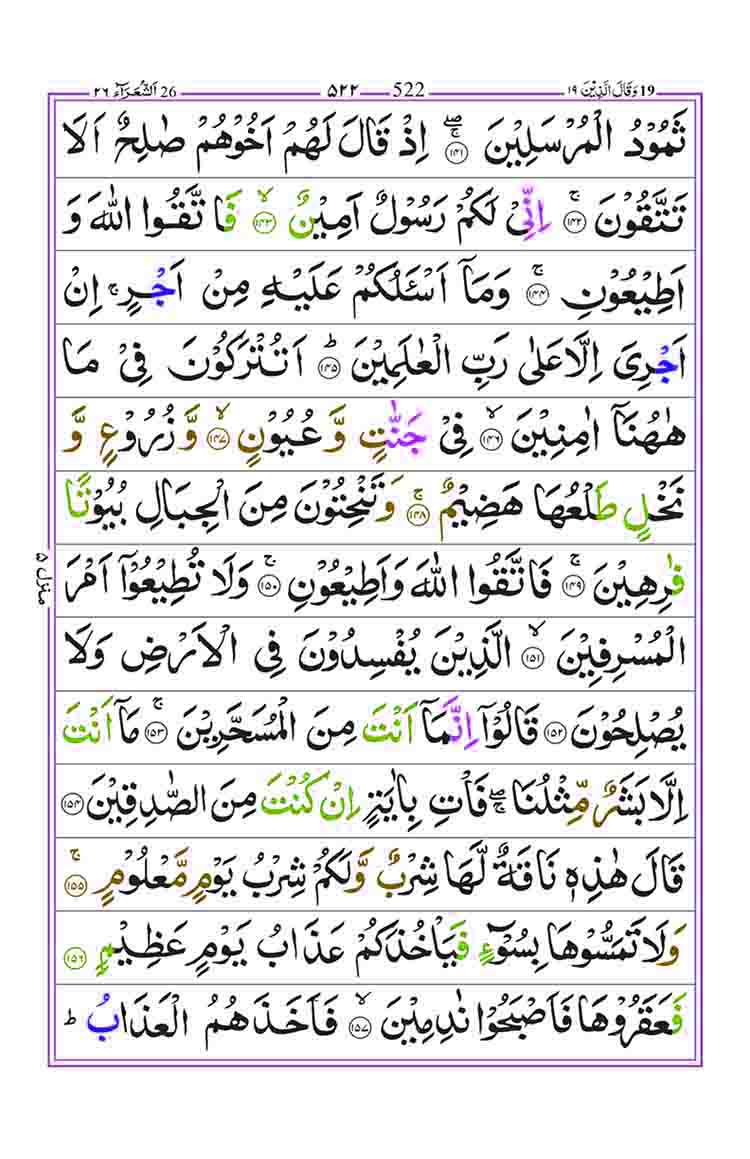 19 وَقَالَ الَّذِيْنَ ١٩ 522 ۵۲۲ 26 اَلشُّعَرَآء ٢٦
ثَمُوْدُ الْمُرْسَلِيْنَ ۚۖ‏ ﴿۱۴۱﴾ اِذْ قَالَ لَهُمْ اَخُوْهُمْ صٰلِحٌ اَلَا
تَتَّقُوْنَ​ۚ‏ ﴿۱۴۲﴾ اِنِّىْ لَـكُمْ رَسُوْلٌ اَمِيْنٌۙ‏ ﴿۱۴۳﴾ فَاتَّقُوا اللّٰهَ وَ
اَطِيْعُوْنِ​ۚ‏ ﴿۱۴۴﴾ وَمَاۤ اَسْئَـلُكُمْ عَلَيْهِ مِنْ اَجْرٍ​ۚ اِنْ
اَجْرِىَ اِلَّا عَلٰى رَبِّ الْعٰلَمِيْنَؕ‏ ﴿۱۴۵﴾ اَتُتْرَكُوْنَ فِىْ مَا
هٰهُنَاۤ اٰمِنِيْنَۙ‏ ﴿۱۴۶﴾ فِىْ جَنّٰتٍ وَّعُيُوْنٍۙ‏ ﴿۱۴۷﴾ وَّزُرُوْعٍ وَّ
نَخْلٍ طَلْعُهَا هَضِيْمٌ​ۚ‏ ﴿۱۴۸﴾ وَتَـنْحِتُوْنَ مِنَ الْجِبَالِ بُيُوْتًا
فٰرِهِيْنَ​ۚ‏ ﴿۱۴۹﴾ فَاتَّقُوا اللّٰهَ وَاَطِيْعُوْنِ​ۚ‏ ﴿۱۵۰﴾ وَلَا تُطِيْعُوْۤا اَمْرَ
الْمُسْرِفِيْنَۙ‏ ﴿۱۵۱﴾ الَّذِيْنَ يُفْسِدُوْنَ فِى الْاَرْضِ وَ لَا
يُصْلِحُوْنَ‏ ﴿۱۵۲﴾ قَالُوْۤا اِنَّمَاۤ اَنْتَ مِنَ الْمُسَحَّرِيْنَ​ۚ‏ ﴿۱۵۳﴾ مَاۤ اَنْتَ
اِلَّا بَشَرٌ مِّثْلُنَا ​ۖۚ فَاْتِ بِاٰيَةٍ اِنْ كُنْتَ مِنَ الصّٰدِقِيْنَ‏ ﴿۱۵۴﴾
قَالَ هٰذِهٖ نَاقَةٌ لَّهَا شِرْبٌ وَّلَـكُمْ شِرْبُ يَوْمٍ مَّعْلُوْمٍ​ۚ‏ ﴿۱۵۵﴾
وَلَا تَمَسُّوْهَا بِسُوْٓءٍ فَيَاْخُذَكُمْ عَذَابُ يَوْمٍ عَظِيْمٍ‏ ﴿۱۵۶﴾
فَعَقَرُوْهَا فَاَصْبَحُوْا نٰدِمِيْنَۙ‏ ﴿۱۵۷﴾ فَاَخَذَهُمُ الْعَذَابُ​ؕ
منزل ۵